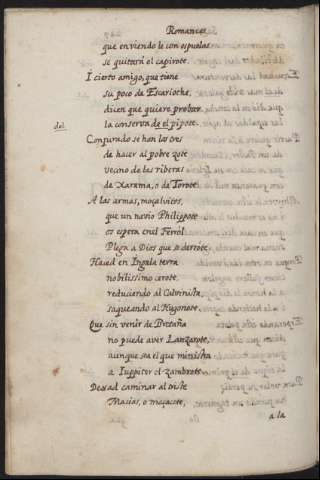 Romances
que en viendo le con espuelas
se quitará el capirote.
I cierto amigo, que tiene
su poco de Escarioche,
dicen que quiere probar
la conserva de el pipote.
del
Conjurado se han los tres
de hacer al pobre zote
vecino de las riberas
de Xarama, o de Torote.
A las armas, moçalvitos,
que un navio Philippote
os espera en el Ferrol
Plega a Dios que se derrote.
Haced en Ingla terra
nobilissimo cerote,
reduciendo al Calvinista,
saqueando al Hugonote.
Que sin venir de Bretaña
no puede aver Lanzarote,
aunque sea el que ministra
a Iuppiter el zambrote
Dexad caminar al triste
Macias, o maçacote,
a la